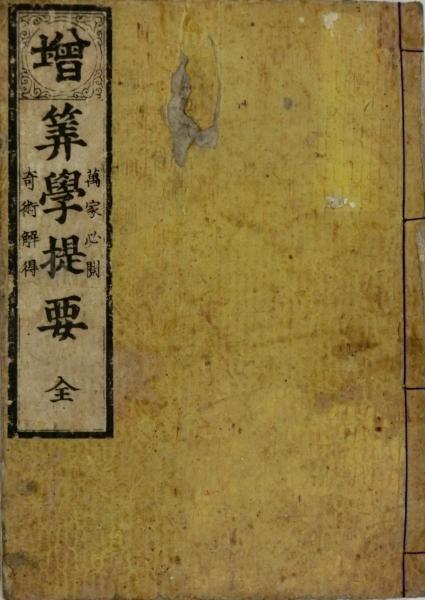 增
筭學提要
萬家必閱
奇術解得
全